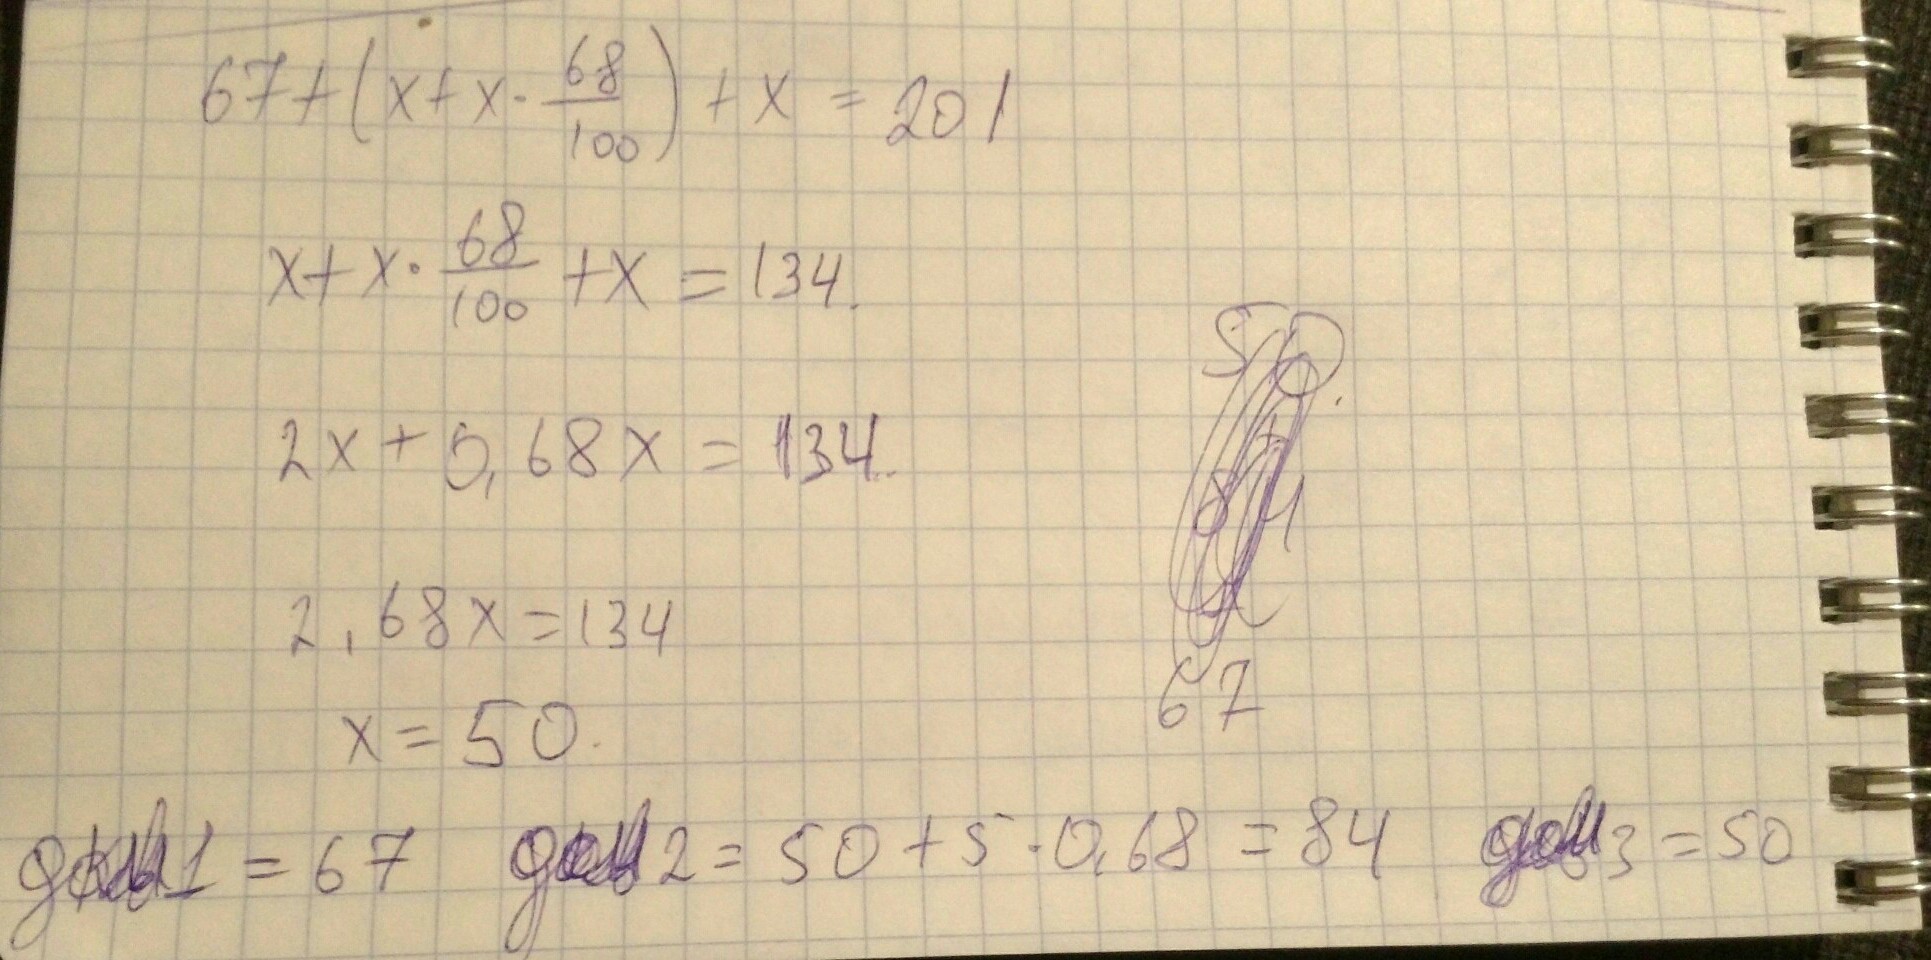 67+(x+x·68/100)+x=201
x+x·68/100+x=134.
2x+0,68x=134.
2,68x=134
x=50.
50.
84
67
дом1=67 дом2=50+5·0,68=84 дом3=50